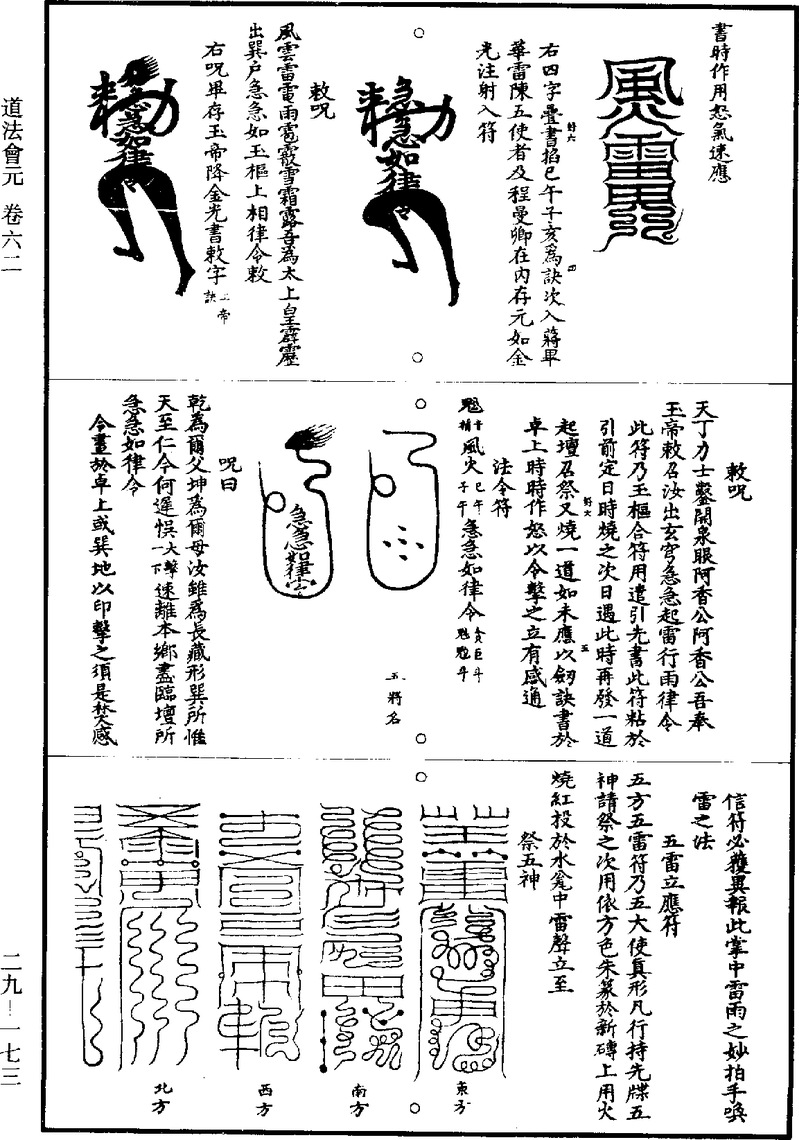 書時作用怒氣速應
風火雷雨
右四字疊書掐巳午子亥爲訣次入蔣畢
華雷陳五使者及程曼卿在內存元如金
光注射入符
勑
急急如律令
勑呪
風雲雷電雨雹霰雪霜露吾為太上皇霹靂
出巽戶急急如玉樞上相律令敕
右呪畢存玉帝降金光書敕字
勑
急急如律令
敕呪
天丁力士鑿開泉眼阿香公阿香公吾奉
玉帝敕召汝出玄穹急急起雷行雨律令
此符乃玉樞合符用遣引先書此符粘於
引前定日時燒之次日遇此時再發一道
起壇召祭又燒一道如未應以劒訣書於
卓上時時作怒以令擊之立有感通
法令符
風火巳午子午急急如律令
五將名
急急如律令
呪曰
乾為爾父坤為爾母汝雖為長藏形巽所惟
天至仁今何遲悞大擊一下速離本鄉盡臨壇所
急急如律令
今畫於卓上或巽地以印擊之須是焚感
信符必獲異報此掌中雷雨之妙拍手喚
雷之法
五雷立應符
五方五雷符乃五大使真形凡行持先牒五
神請祭之次用依方色朱篆於新磚上用火
燒紅投於水瓮中雷聲立至
祭五神
東方
南方
西方
北方
道法會元 卷六二
二九—一七三